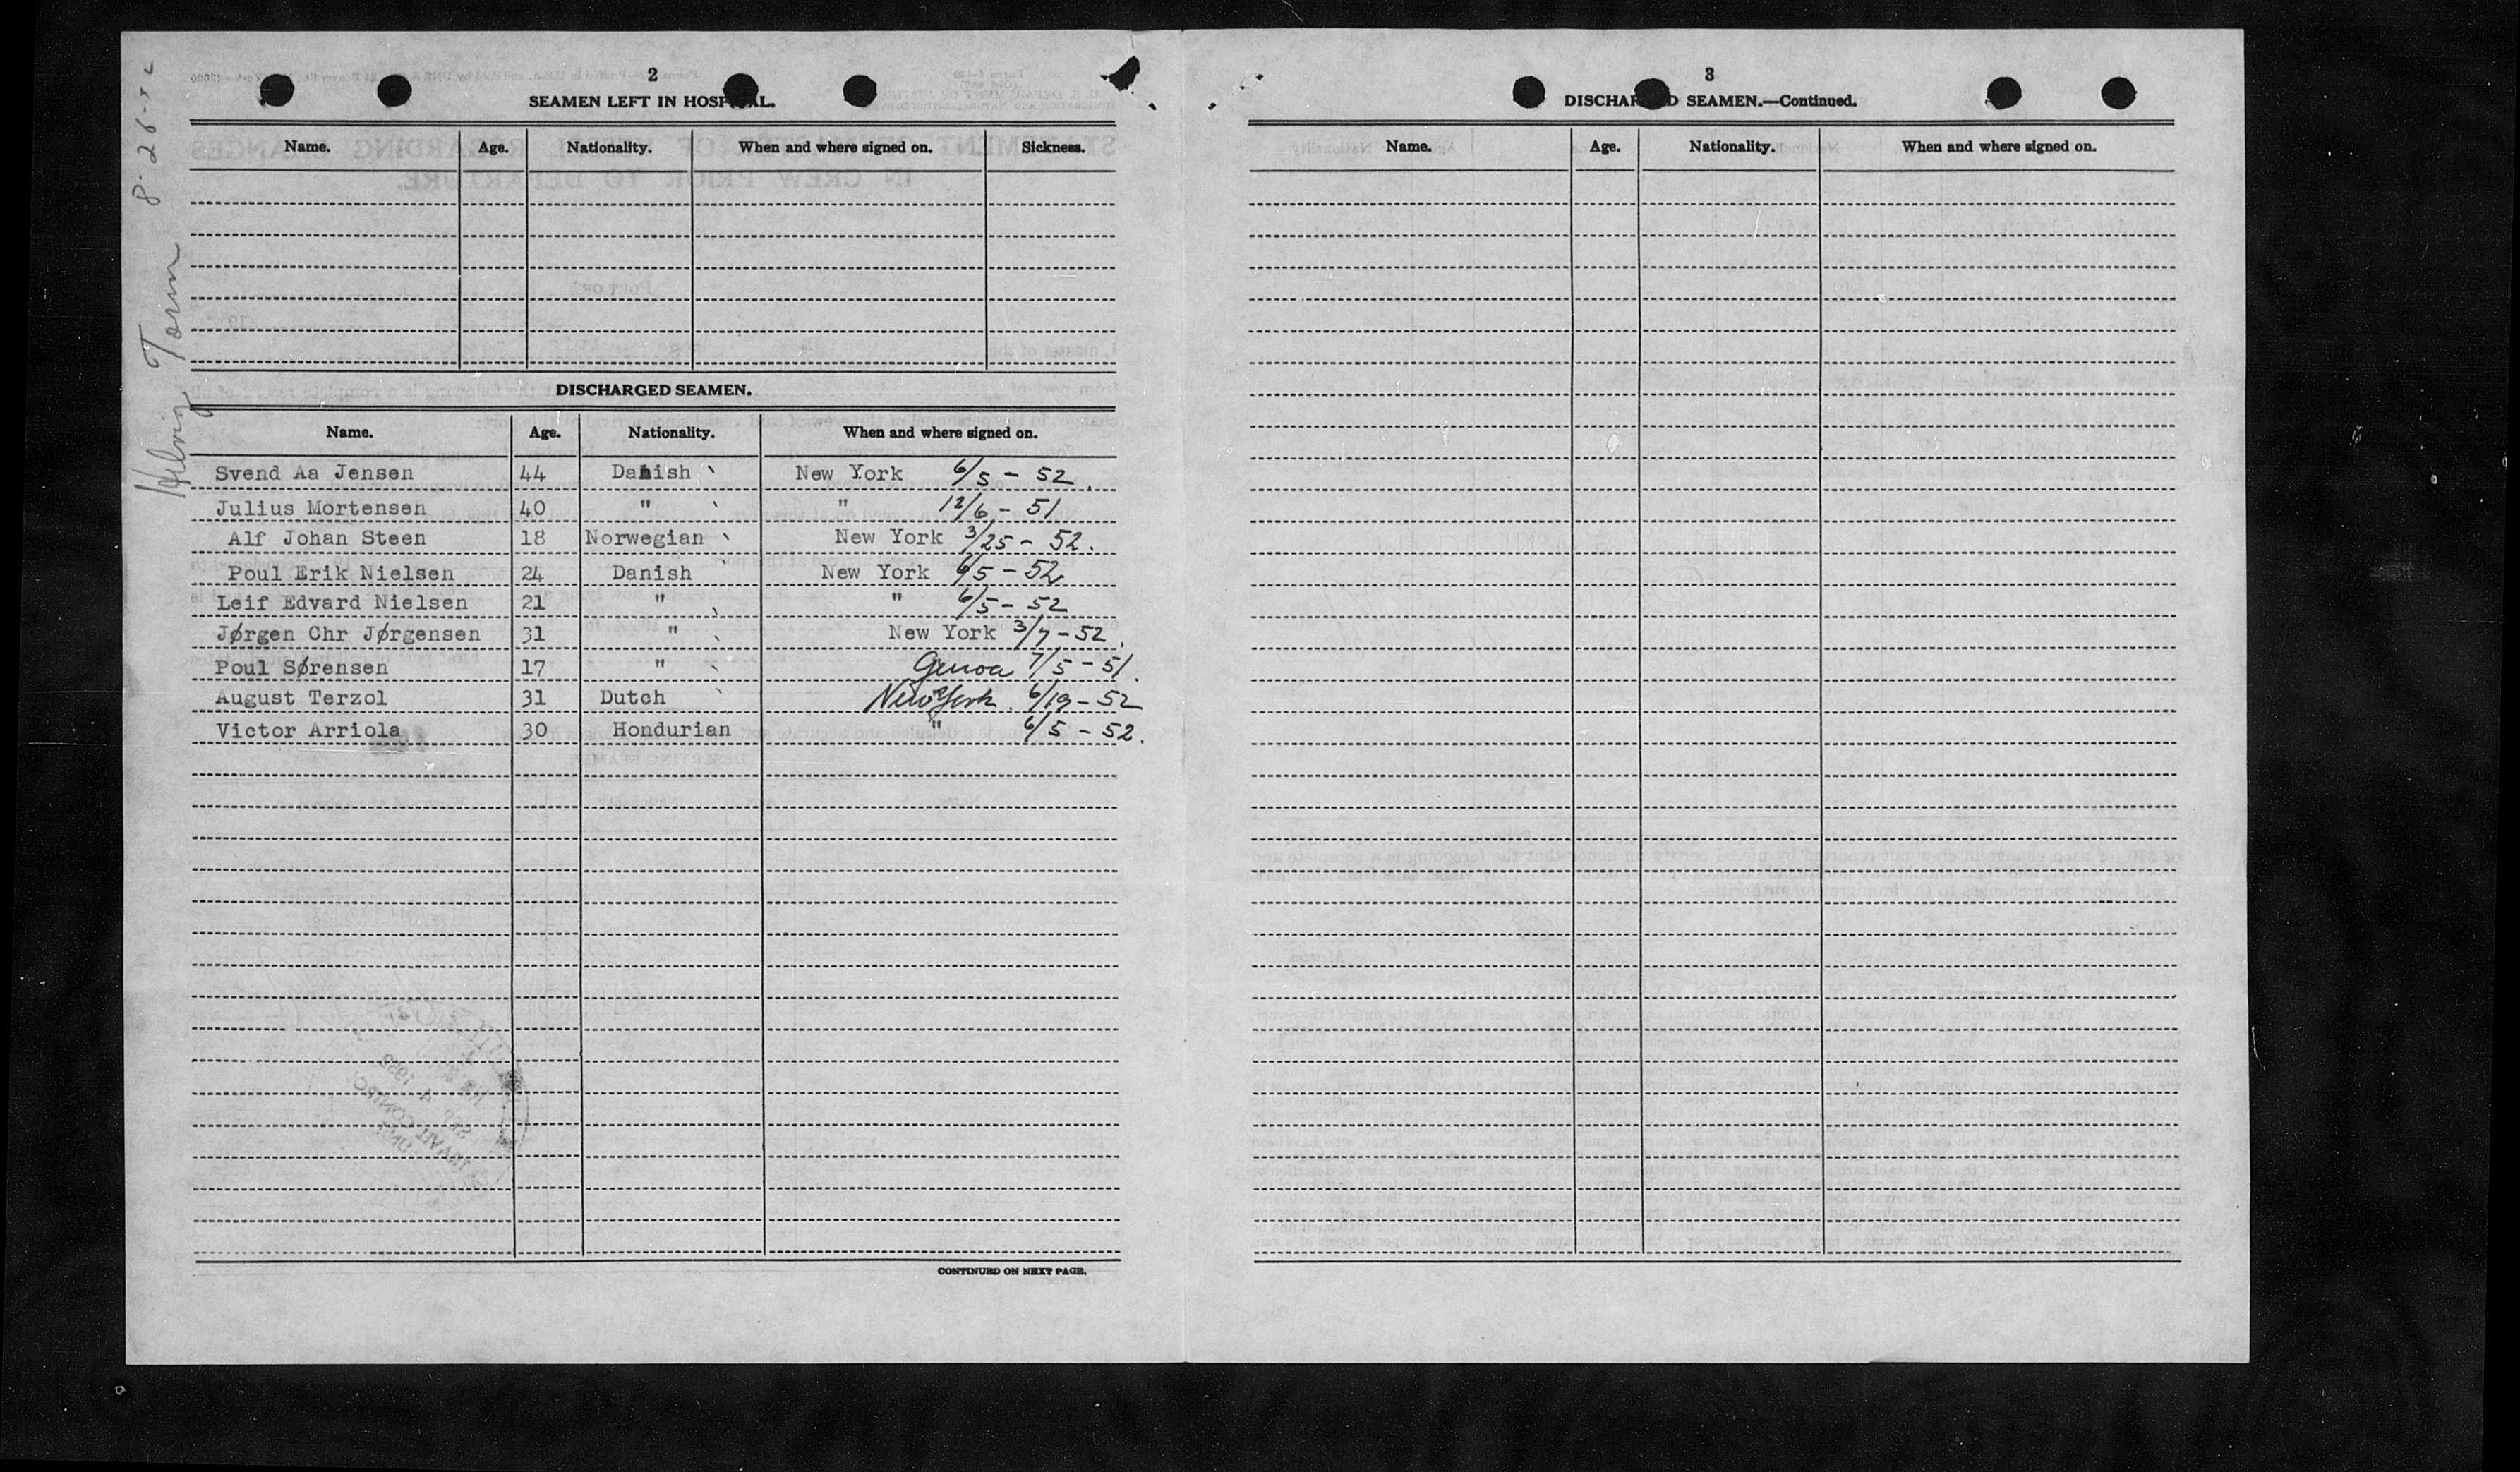 8-26-52
Torm
2
SEAMEN LEFT IN HOSPITAL.
Name. Age. Nationality. When and where signed on. Sickness.
DISCHARGED SEAMEN.
Name. Age. Nationality. When and where signed on.
Svend Aa Jensen 44 Danish New York 6/5 - 52.
Julius Mortensen 40 " " 12/6 - 51
Alf Johan Steen 18 Norwegian New York 3/25 - 52.
Poul Erik Nielsen 24 Danish New York 6/5 - 52
Leif Edvard Nielsen 21 " " 6/5 - 52
Jørgen Chr Jørgensen 31 " New York 3/7 - 52.
Poul Sørensen 17 " Genoa 7/5 - 51.
August Terzol 31 Dutch New York. 6/19 - 52
Victor Arriola 30 Hondurian " 6/5 - 52.
CONTINUED ON NEXT PAGE.
3
DISCHARGED SEAMEN.—Continued.
Name. Age. Nationality. When and where signed on.